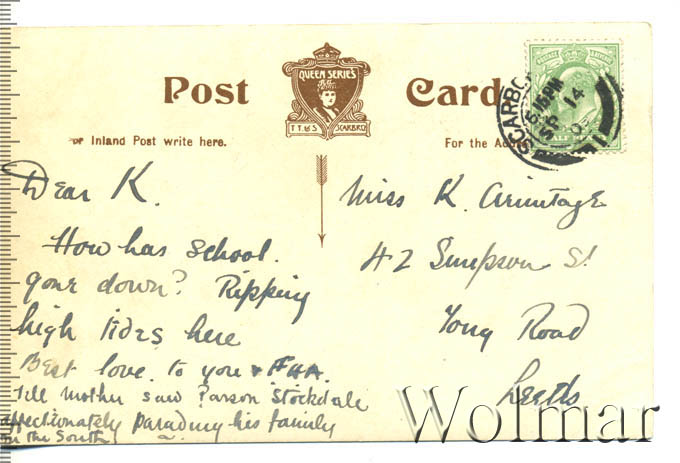 Post Card
QUEEN SERIES
T.T.& S SCARBRO
or Inland Post write here.
For the Ad
SCARBO
5.15PM
SP 14
Dear K.
How has school
gone down? Ripping
high tides here
Best love to you &
Tell Mother saw Parson Stockdale
affectionately parading his family
in the South
Miss K. Armitage
42 Simpson St
Tong Road
Leeds
Wolmar